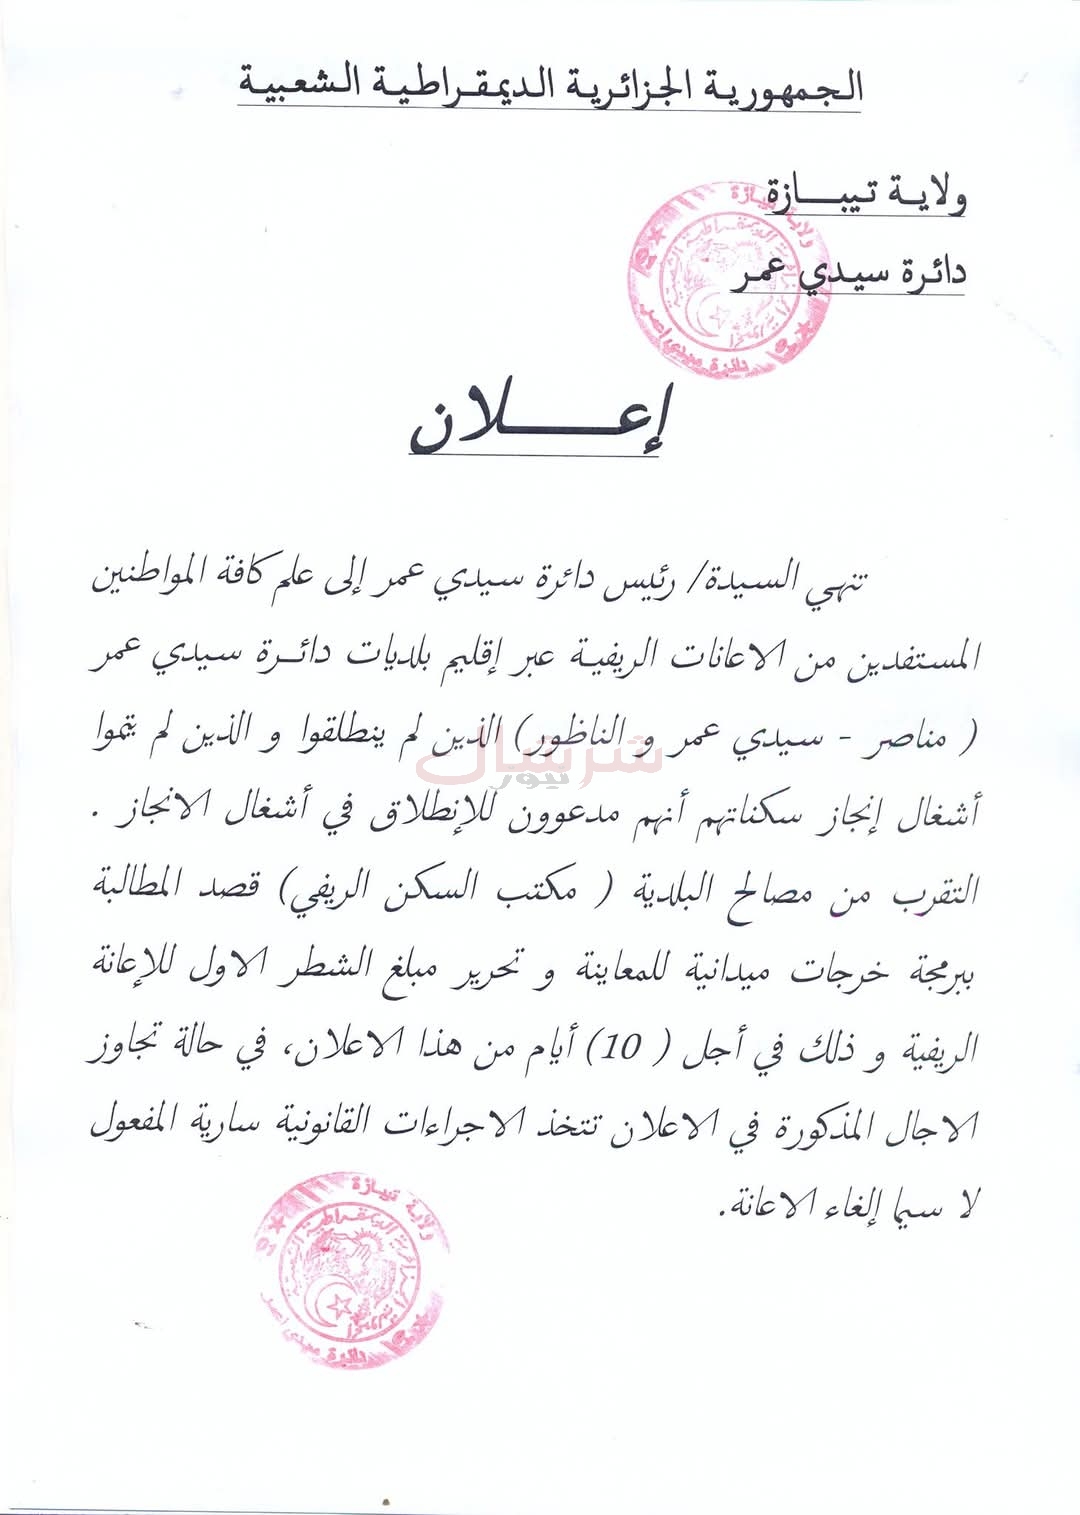 الجمهورية الجزائرية الديمقراطية الشعبية
ولاية تيبازة
دائرة سيدي عمر
إعلان
تنهي السيدة/ رئيس دائرة سيدي عمر إلى علم كافة المواطنين
المستفدين من الاعانات الريفية عبر إقليم بلديات دائرة سيدي عمر
( مناصر - سيدي عمر و الناظور) الذين لم ينطلقوا و الذين لم يتموا
أشغال إنجاز سكناتهم أنهم مدعوون للإنطلاق في أشغال الانجاز .
التقرب من مصالح البلدية ( مكتب السكن الريفي) قصد المطالبة
ببرمجة خرجات ميدانية للمعاينة و تحرير مبلغ الشطر الاول للإعانة
الريفية و ذلك في أجل ( 10) أيام من هذا الاعلان، في حالة تجاوز
الاجال المذكورة في الاعلان تتخذ الاجراءات القانونية سارية المفعول
لا سيما إلغاء الاعانة.
شرشال
نيوز
ولاية تيبازة
دائرة سيدي اعمر